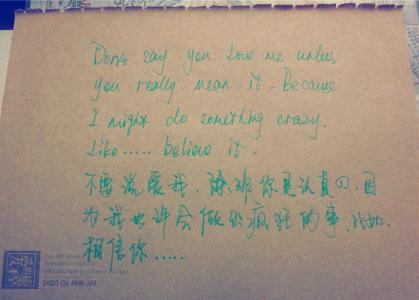 Dont say you Love me unless
you really mean it. Because
I might do something crazy.
Like..... believe it.
不要说爱我，除非你是认真的，因
为我也许会做出疯狂的事，比如
相信你.....
MY WAY TO LOVE